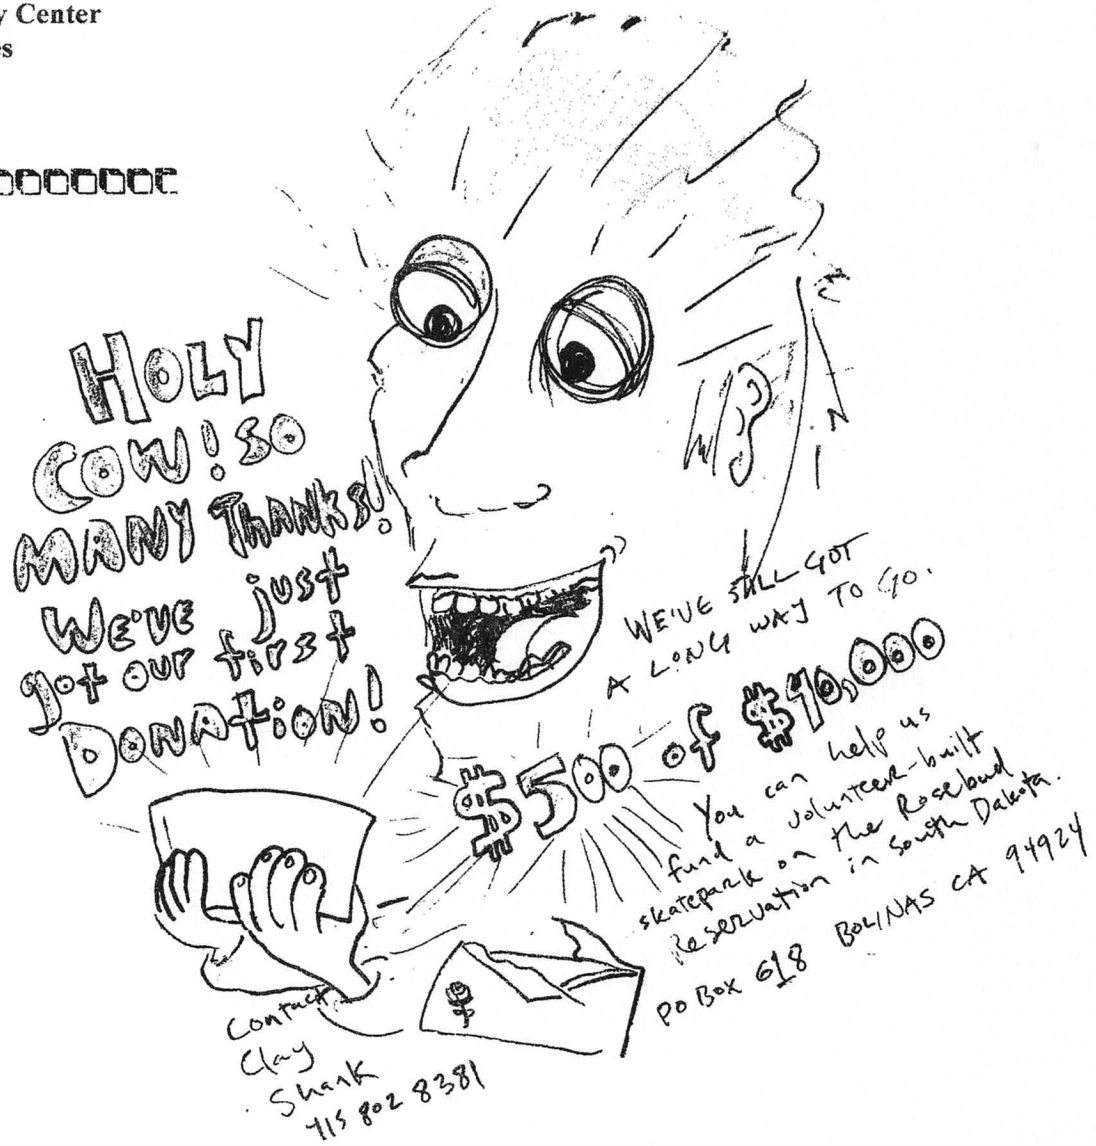 y Center
es
HOLY
COW! SO
MANY THANKS!
WE'VE just
got our first
DONATION!
WE'VE STILL GOT
A LONG WAY TO GO.
$500 of $40,000
You can help us
fund a volunteer-built
skatepark on the Rosebud
Reservation in South Dakota.
PO BOX 618 BOLINAS CA 94924
Contact
Clay
Shank
415 802 8381